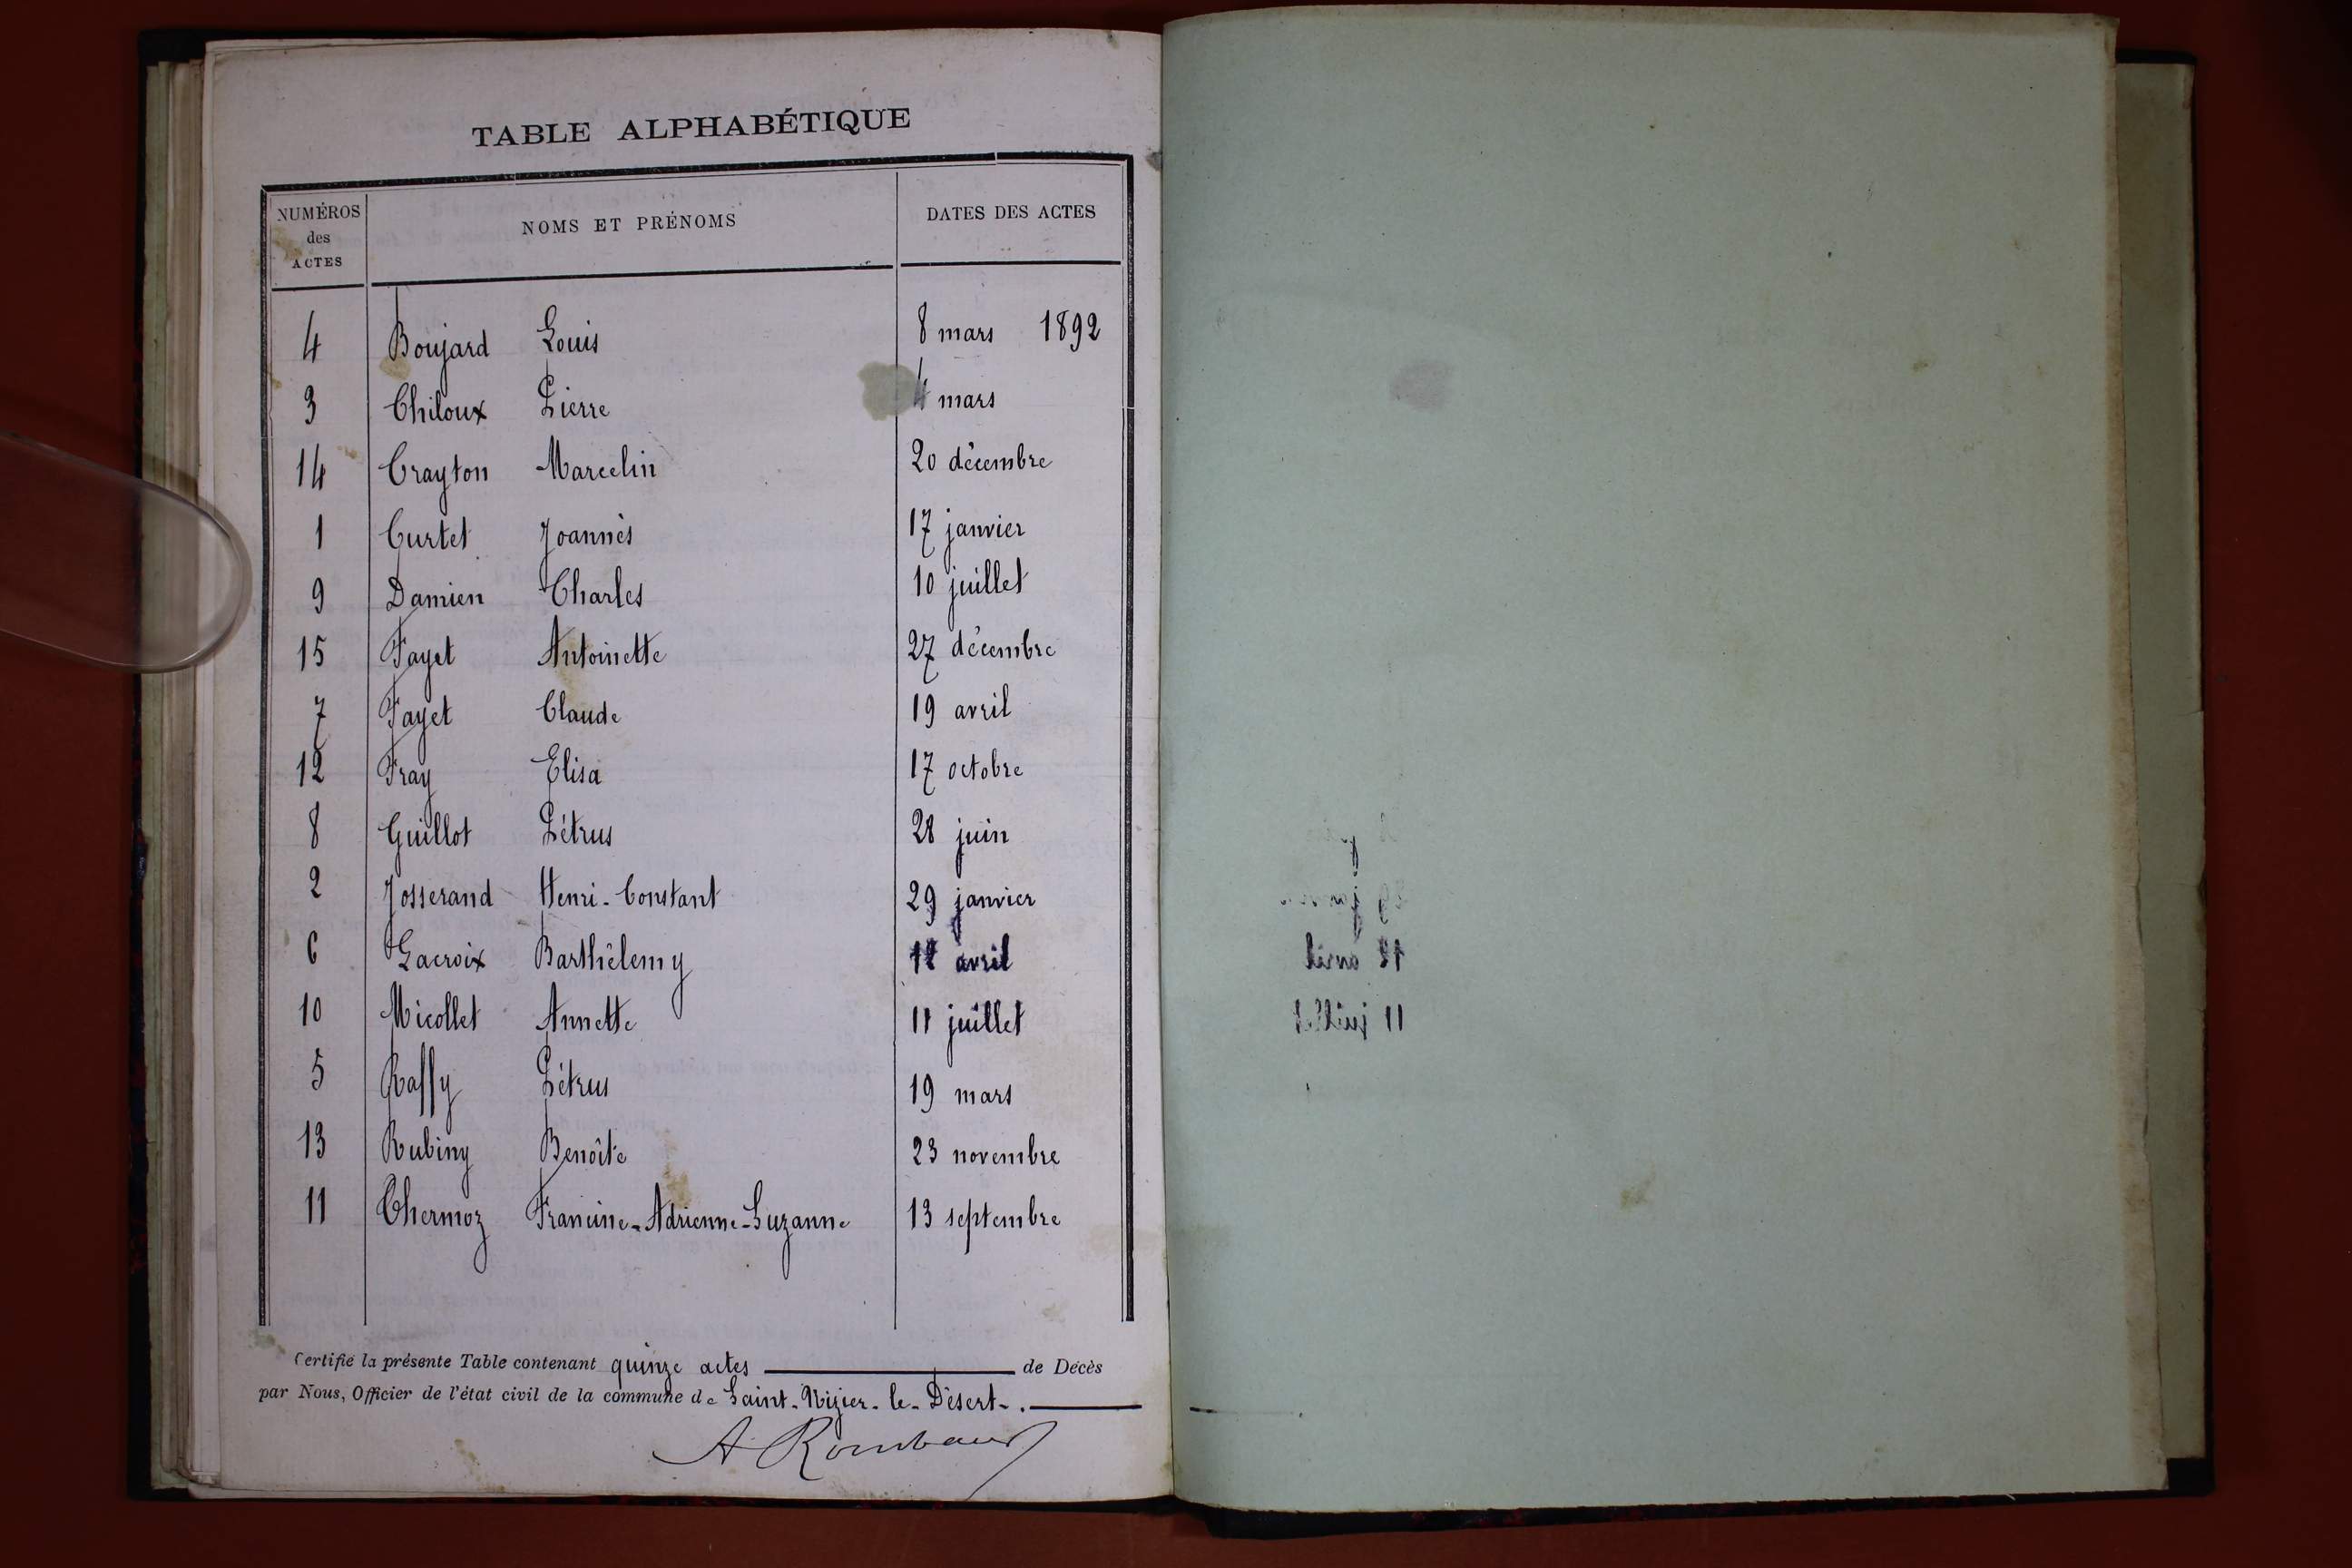 TABLE ALPHABÉTIQUE
NUMÉROS des ACTES NOMS ET PRÉNOMS DATES DES ACTES
4 Boujard Louis 8 mars 1892
3 Chiloux Pierre 4 mars
14 Crayton Marcelin 20 décembre
1 Curtet Joannès 17 janvier
9 Damien Charles 10 juillet
15 Fayet Antoinette 27 décembre
7 Fayet Claude 19 avril
12 Fray Elisa 17 octobre
8 Guillot Pétrus 28 juin
2 Josserand Henri-Constant 29 janvier
6 Lacroix Barthélemy avril
10 Micollet Annette 11 juillet
5 Raffy Pétrus 19 mars
13 Rubiny Benoîte 23 novembre
11 Thermoz Francine-Adrienne-Suzanne 13 septembre
Certifié la présente Table contenant quinze actes de Décès
par Nous, Officier de l'état civil de la commune de Saint-Nizier-le-Désert-.